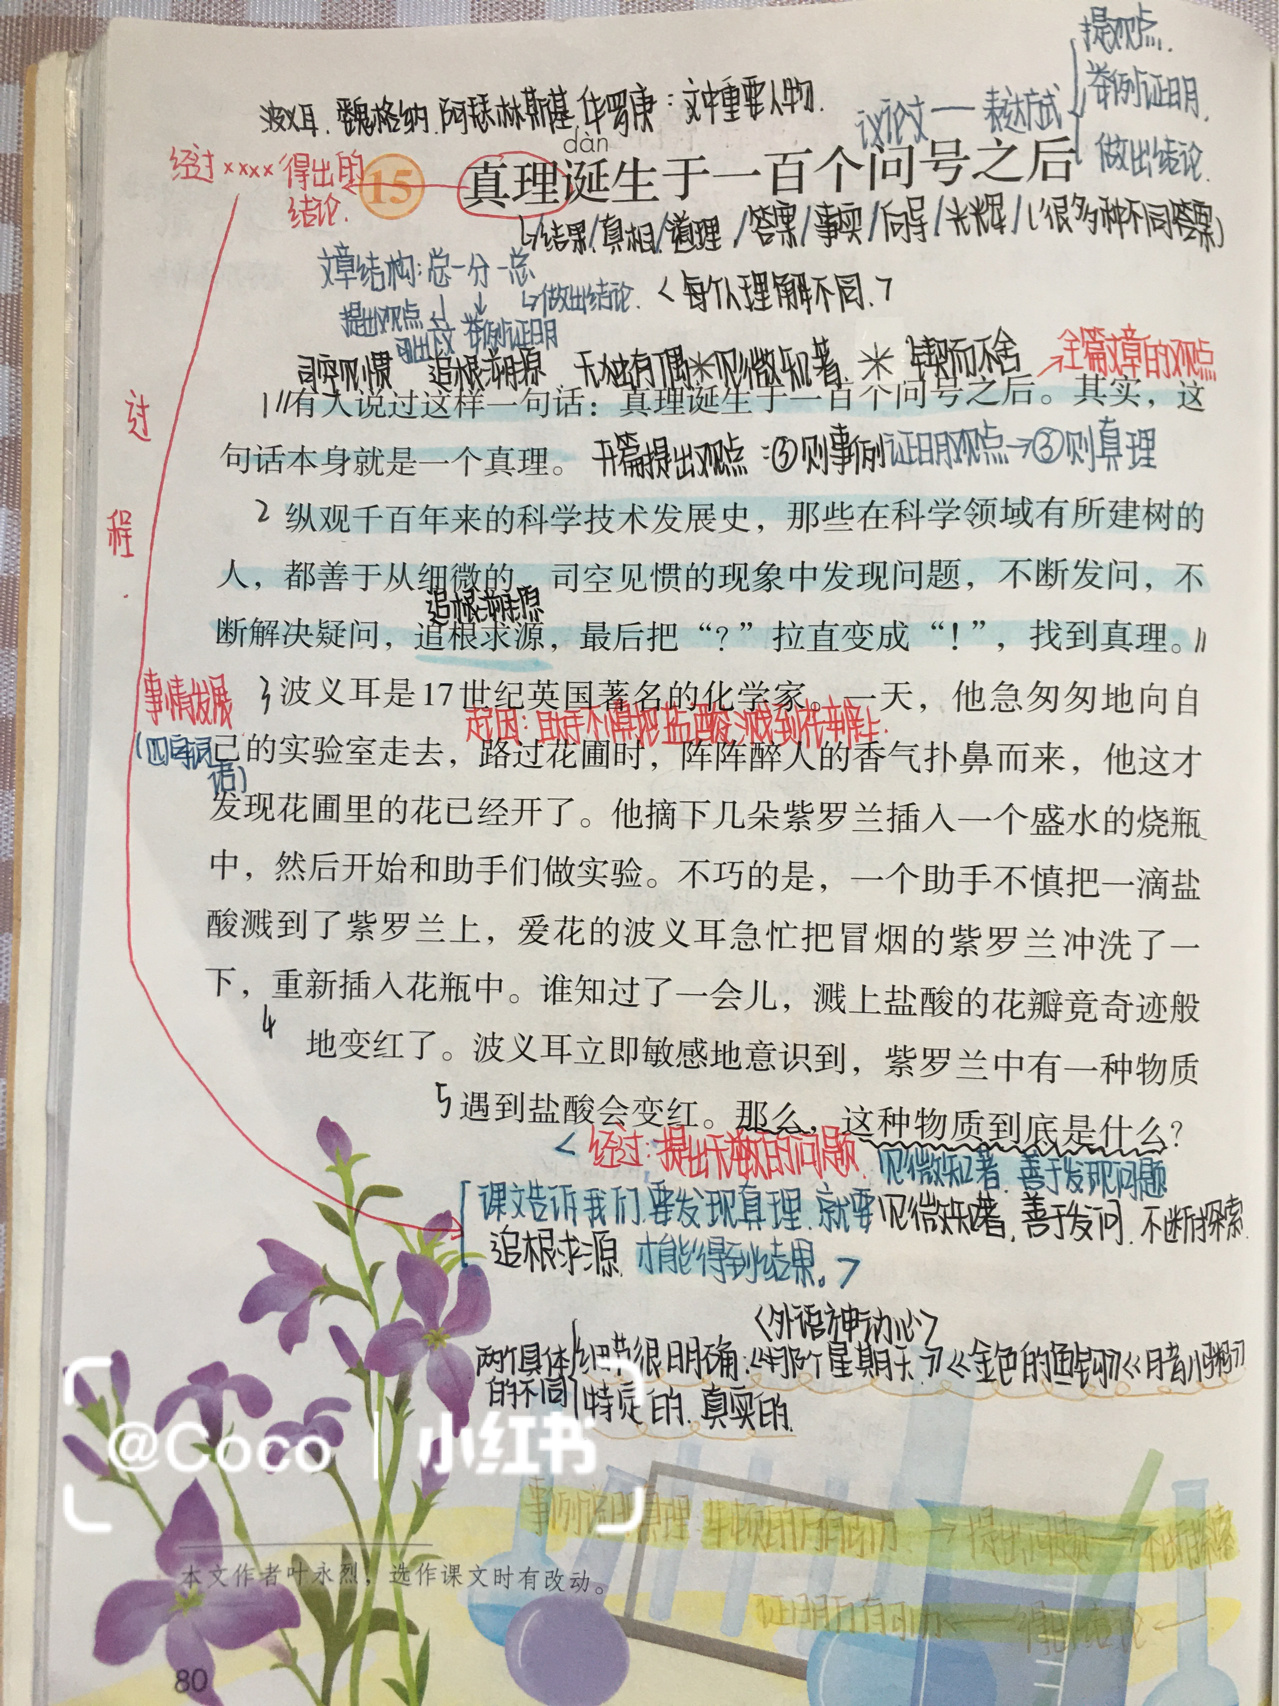 提观点.
举例证明.
做出结论.
议论文——表达方式
波义耳.魏格纳.阿瑟林斯基.华罗庚:文中重要人物.
经过××××得出的
结论.
dàn
15 真理诞生于一百个问号之后
↳/结果/真相/道理/答案/事实/向导/光辉/(很多种不同答案)
文章结构:总-分-总
↳做出结论.<每个人理解不同.>
提出观点 举例证明
引出下文
司空见惯 追根求源 无独有偶*见微知著 * 锲而不舍
全篇文章的观点
1//有人说过这样一句话：真理诞生于一百个问号之后。其实，这
句话本身就是一个真理。 开篇提出观点:③则事例证明观点→③则真理
过
程
2 纵观千百年来的科学技术发展史，那些在科学领域有所建树的
人，都善于从细微的、司空见惯的现象中发现问题，不断发问，不
追根求源
断解决疑问，追根求源，最后把“？”拉直变成“！”，找到真理。//
事情发展
3 波义耳是17世纪英国著名的化学家。一天，他急匆匆地向自
起因:助手不慎把盐酸溅到花瓣上.
(四字词
语)
己的实验室走去，路过花圃时，阵阵醉人的香气扑鼻而来，他这才
发现花圃里的花已经开了。他摘下几朵紫罗兰插入一个盛水的烧瓶
中，然后开始和助手们做实验。不巧的是，一个助手不慎把一滴盐
酸溅到了紫罗兰上，爱花的波义耳急忙把冒烟的紫罗兰冲洗了一
下，重新插入花瓶中。谁知过了一会儿，溅上盐酸的花瓣竟奇迹般
4 地变红了。波义耳立即敏感地意识到，紫罗兰中有一种物质
5 遇到盐酸会变红。那么，这种物质到底是什么？
<经过:提出无数的问题.见微知著.善于发现问题
课文告诉我们.要发现真理.就要见微知著.善于发问.不断探索.
追根求源.才能得到结果。>
<外语神动心>
两个具体 细节很明确:《那个星期天》《金色的鱼钩》《月音小粥》
的不同 特定的.真实的.
@Coco 小红书
→提出问题→不断探索
本文作者叶永烈，选作课文时有改动。
80